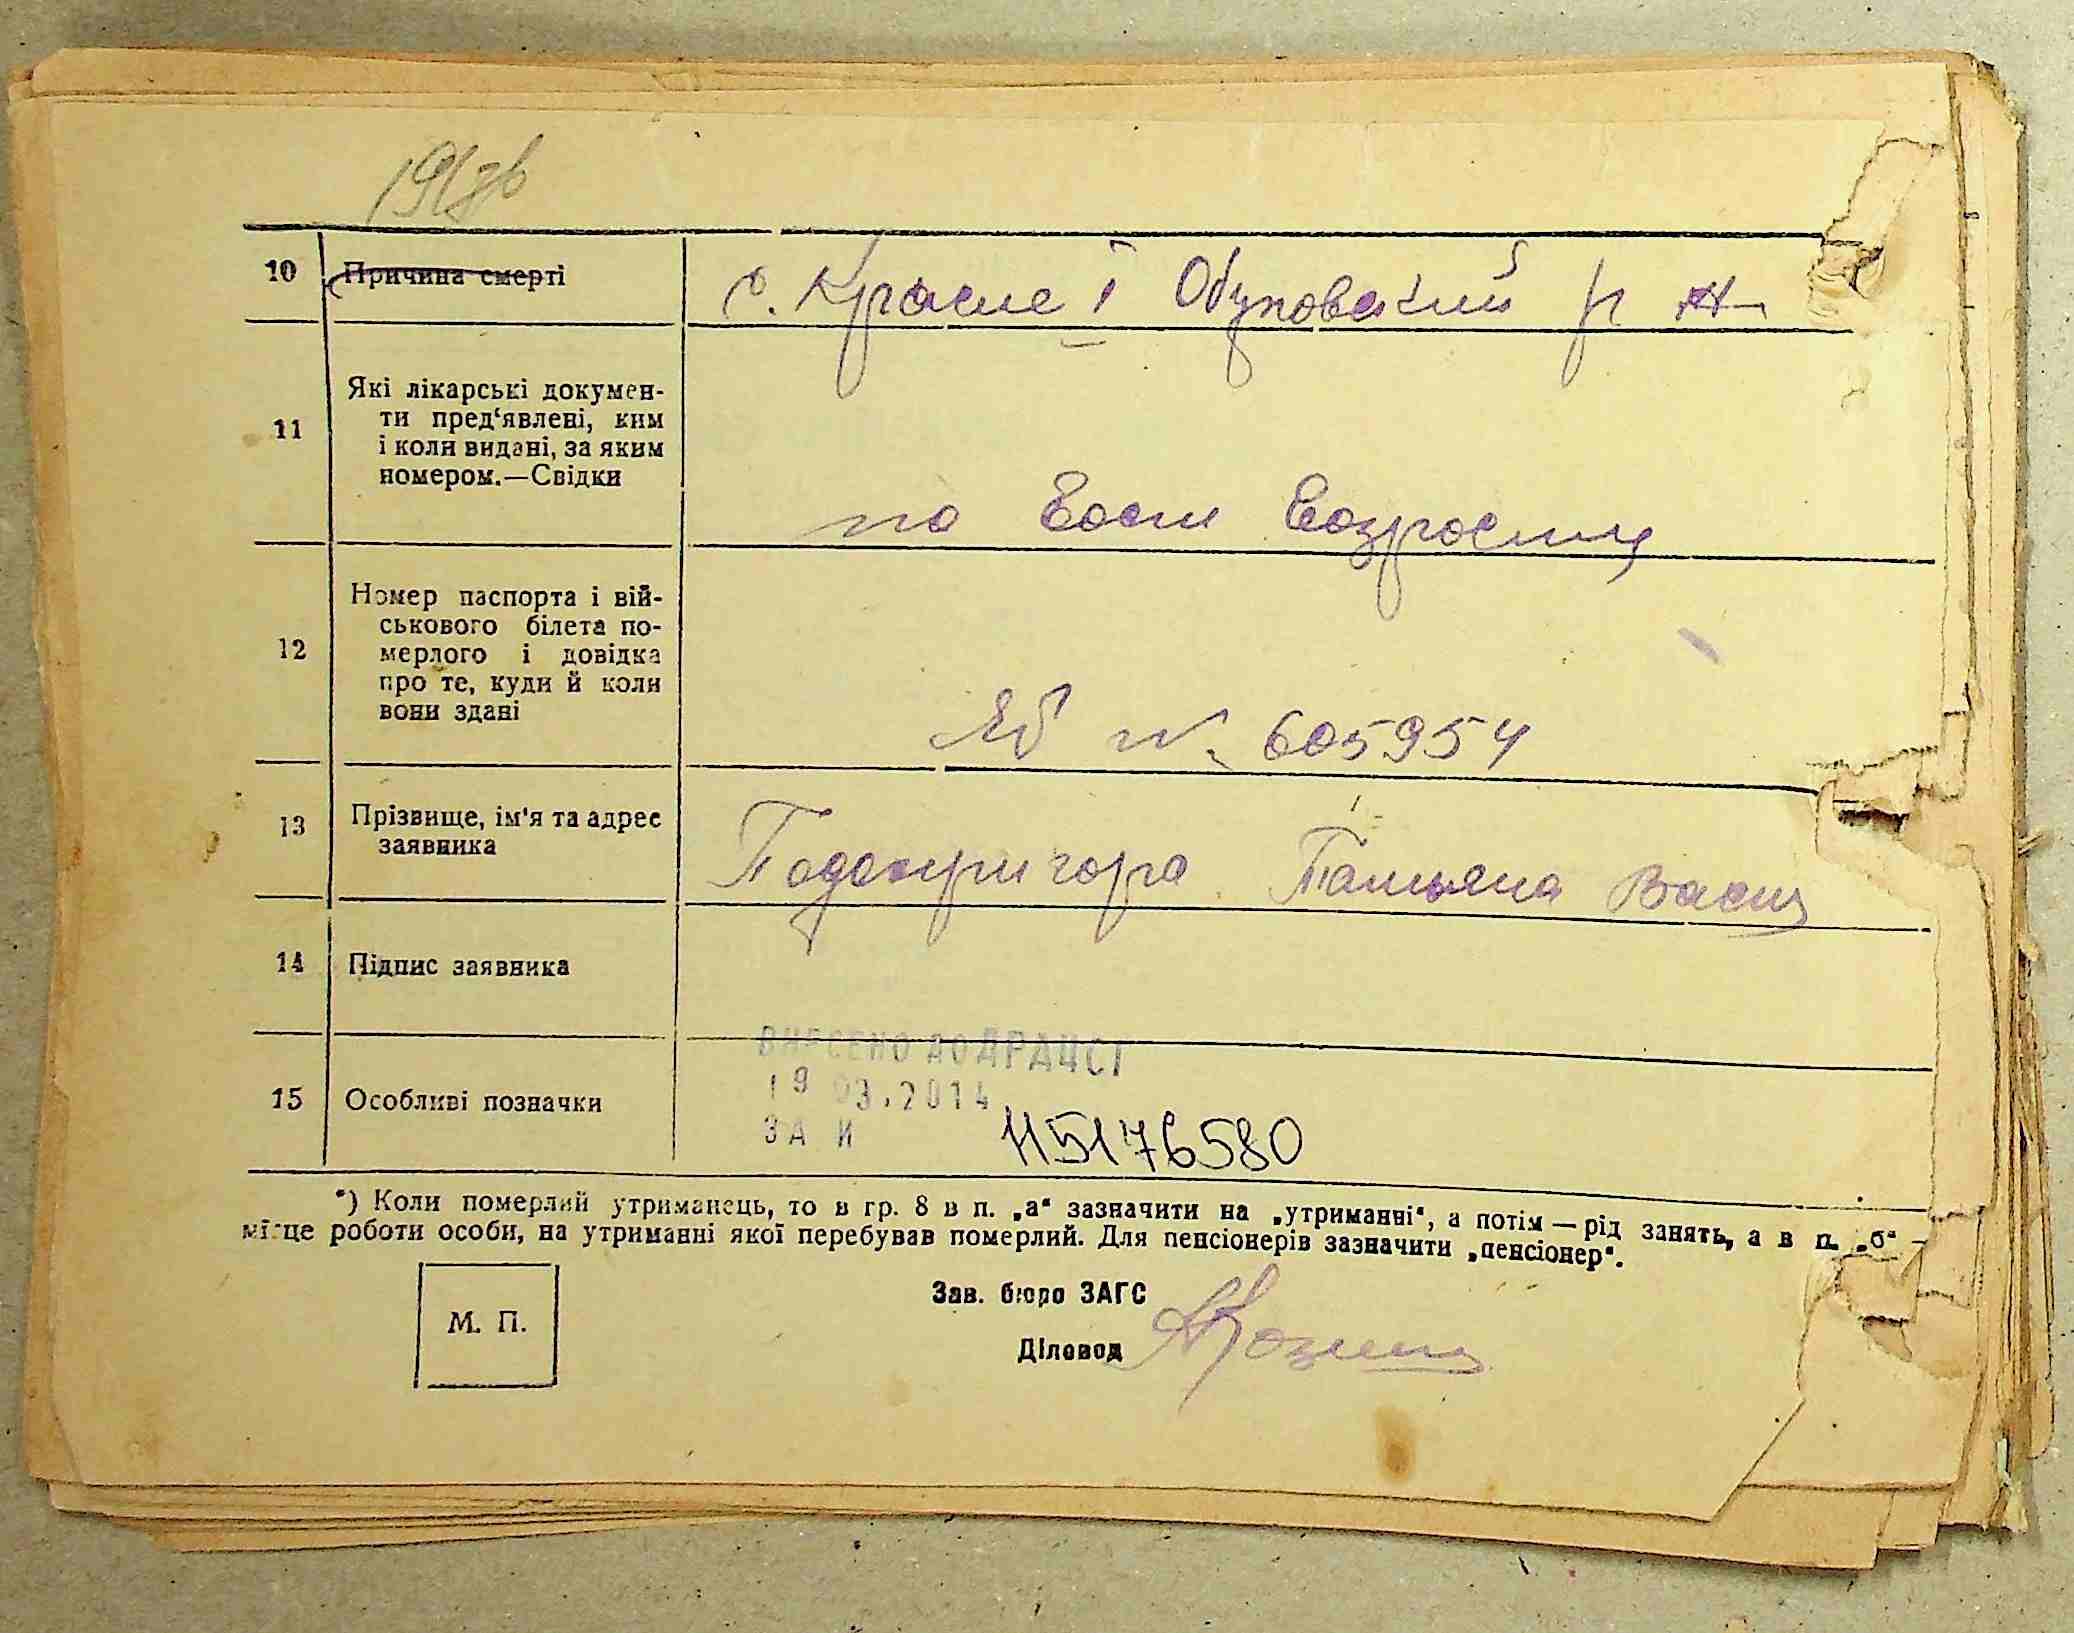 10 Причина смерті с. Красне І Обуховский р н
11 Які лікарські докумен-
ти пред‘явлені, ким
і коли видані, за яким
номером.—Свідки
по возрасту
12 Номер паспорта і вій-
ськового білета по-
мерлого і довідка
про те, куди й коли
вони здані
№ 605954
13 Прізвище, ім'я та адрес
заявника
Татьяна Васи
14 Підпис заявника
ВНЕСЕНО ДО ДРАЦСГ
15 Особливі позначки
19 03.2014
ЗА И 115176580
*) Коли померлий утриманець, то в гр. 8 в п. „а“ зазначити на „утриманні“, а потім — рід занять, а в п. „б“ —
місце роботи особи, на утриманні якої перебував померлий. Для пенсіонерів зазначити „пенсіонер“.
Зав. бюро ЗАГС
М. П.
Діловод